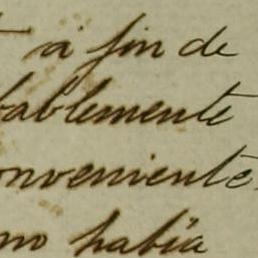 á fin de
bablemente
onveniente
no había